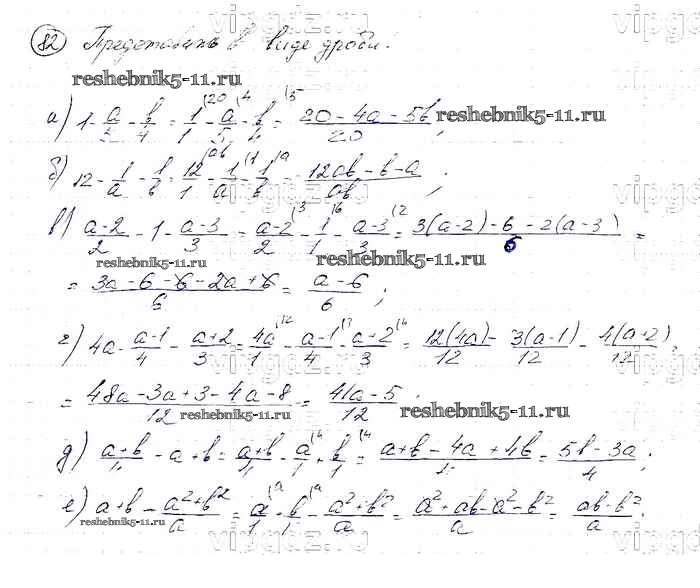 82 Представить в виде дроби.
reshebnik5-11.ru
а) 1 - a/5 - b/4 = 1/1 (20 - a/5 (4 - b/4 (5 = 20-4a-5b/20 ; reshebnik5-11.ru
б) 12 - 1/a - 1/b = 12/1 (ab - 1/a (1 - 1/b (a = 12ab-b-a/ab ;
в) a-2/2 - 1 - a-3/3 = a-2/2 (3 - 1/1 (6 - a-3/3 (2 = 3(a-2)-6-2(a-3)/6 =
reshebnik5-11.ru reshebnik5-11.ru
= 3a-6-6-2a+6/6 = a-6/6 ;
г) 4a - a-1/4 - a+2/3 = 4a/1 (12 - a-1/4 (3 - a+2/3 (4 = 12(4a)/12 - 3(a-1)/12 - 4(a+2)/12
= 48a-3a+3-4a-8/12 = 41a-5/12 ;
reshebnik5-11.ru reshebnik5-11.ru
д) a+b/4 - a + b = a+b/4 - a/1 (4 + b/1 (4 = a+b-4a+4b/4 = 5b-3a/4 ;
е) a+b - a²+b²/a = a/1 (a + b/1 (a - a²+b²/a = a²+ab-a²-b²/a = ab-b²/a ;
reshebnik5-11.ru
vipgdz.ru